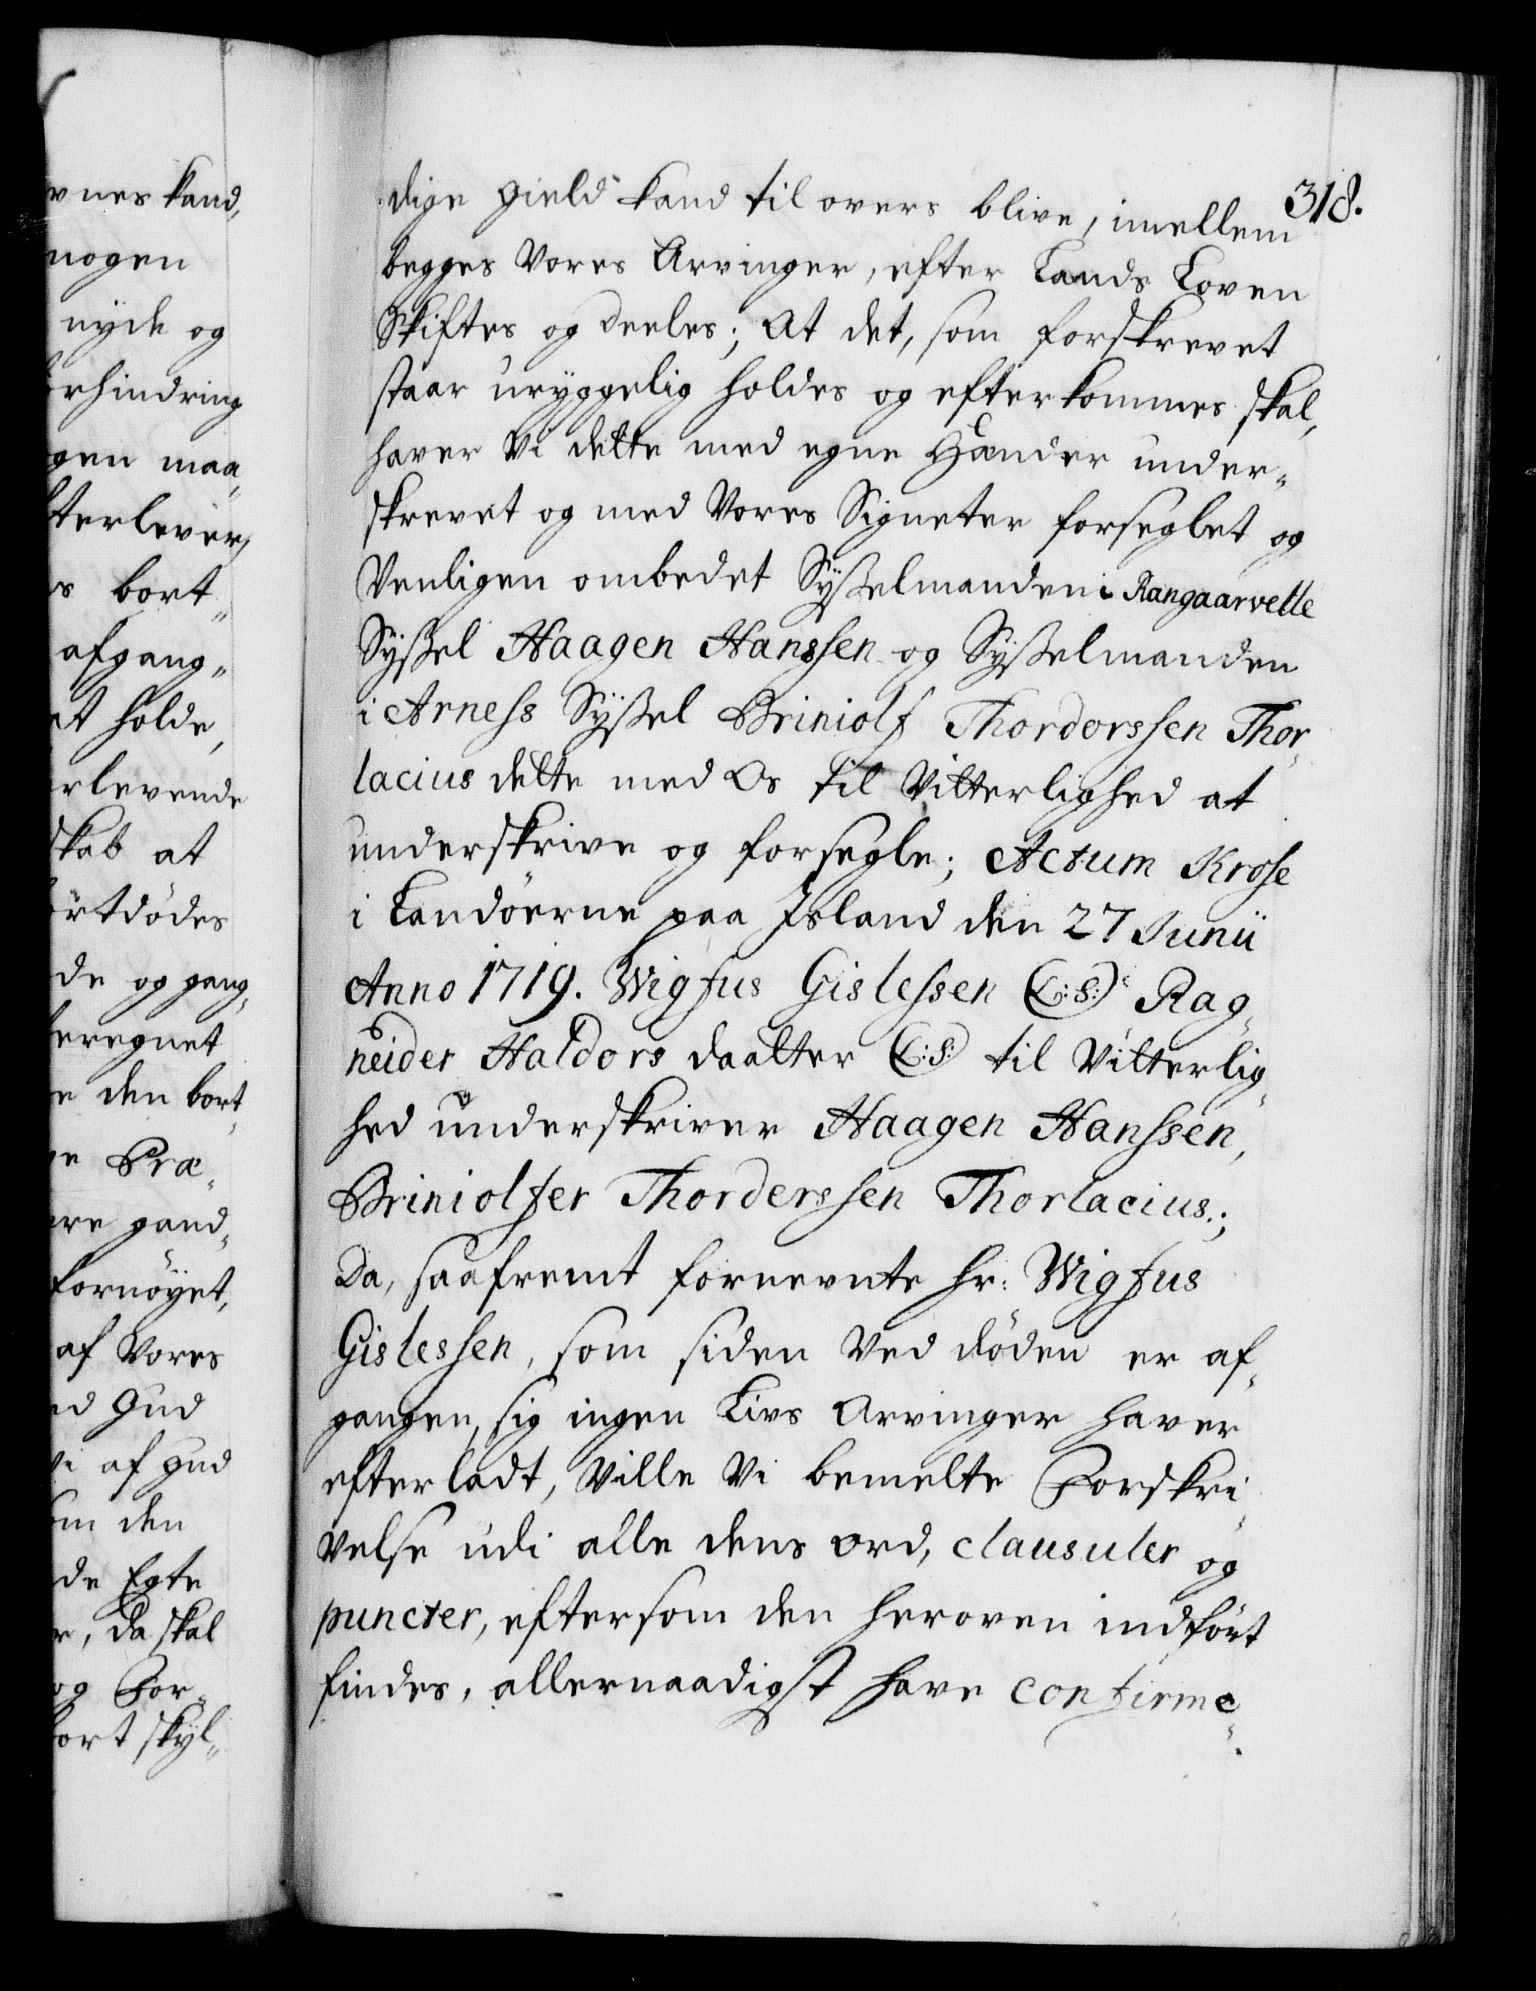 vnes kand,
nogen
nyde og
orhindring
gen maa„
fterlever,
s bort„
afgang„
et holde,
rlevende
skab at
ortdödes
de og gang„
beregnet
e den bort„
ve Præ„
ere pand„
fornöyet,
af Vores
ed Gud
Vi af Gud
om den
de Egte
r, da skal
og For„
bort skyl„
318.
dige gield kand til overs blive, imellem
begges Vores Arvinger, efter Lands Loven
Skiftes og deeles; At det, som forskrevet
staar uryggelig holdes og efterkommes skal,
haver Vi dette med egne Hænder under„
skrevet og med Vores Signeter forseglet og
Venligen ombedet Sysselmanden i Rangaarvelle
Syssel Haagen Hanssen og Sysselmanden
i Arness Syssel Briniolf Thordorssen Thor„
lacius dette med Os til Vitterlighed at
underskrive og forsegle; Actum Krose
i Landöerne paa Island den 27 Junii
Anno 1719. Wigfus Gislessen (L:S:) Rag„
neider Haldors daatter (L:S:) til Vitterlig„
hed underskriver Haagen Hanssen,
Briniolfer Thorderssen Thorlacius.;
Da, saafremt fornevnte Hr: Wigfus
Gislessen, som siden Ved döden er af„
gangen, sig ingen Livs Arvinger haver
efterladt, Ville Vi bemelte Forskri„
velse udi alle dens Ord, clausuler og
puncter, eftersom den heroven indfört
findes, allernaadigst have confirme„